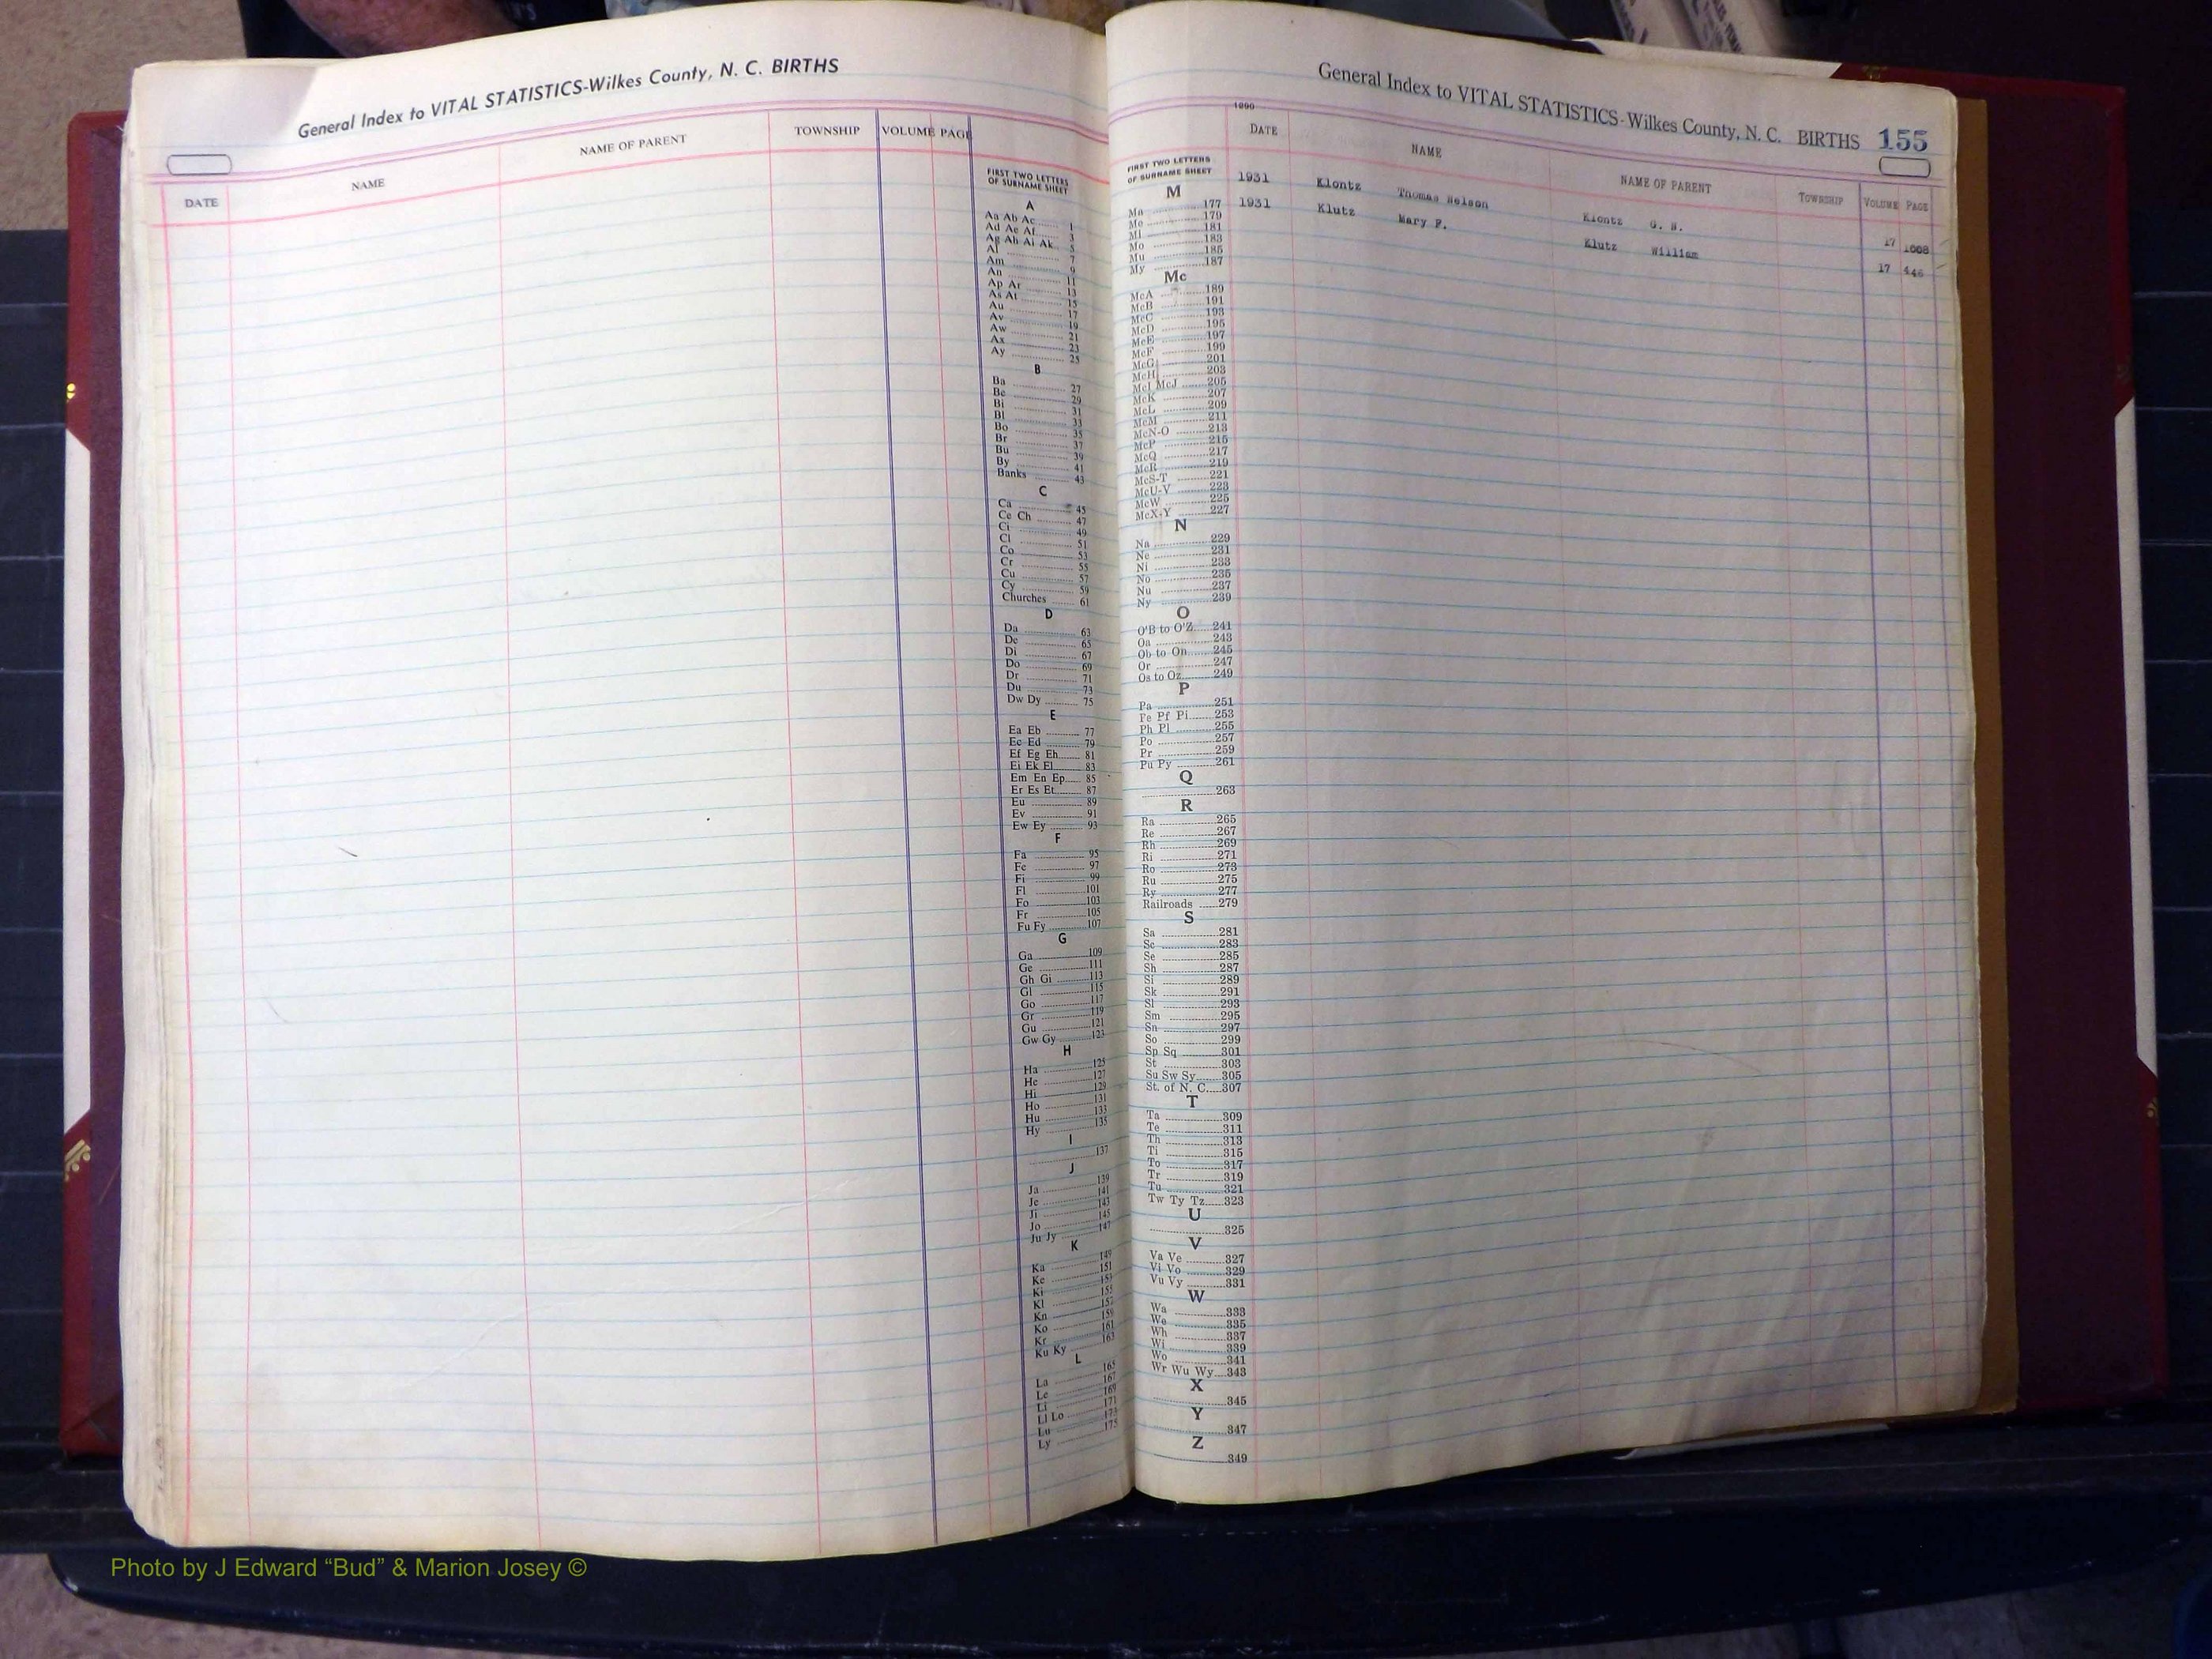 General Index to VITAL STATISTICS-Wilkes County, N. C. BIRTHS
DATE NAME NAME OF PARENT TOWNSHIP VOLUME PAGE
FIRST TWO LETTERS
OF SURNAME SHEET
A
Aa Ab Ac 1
Ad Ae Af 3
Ag Ah Ai Ak 5
Al 7
Am 9
An 11
Ap Ar 13
As At 15
Au 17
Av 19
Aw 21
Ax 23
Ay 25
B
Ba 27
Be 29
Bi 31
Bl 33
Bo 35
Br 37
Bu 39
By 41
Banks 43
C
Ca 45
Ce Ch 47
Ci 49
Cl 51
Co 53
Cr 55
Cu 57
Cy 59
Churches 61
D
Da 63
De 65
Di 67
Do 69
Dr 71
Du 73
Dw Dy 75
E
Ea Eb 77
Ec Ed 79
Ef Eg Eh 81
Ei Ek El 83
Em En Ep 85
Er Es Et 87
Eu 89
Ev 91
Ew Ey 93
F
Fa 95
Fe 97
Fi 99
Fl 101
Fo 103
Fr 105
Fu Fy 107
G
Ga 109
Ge 111
Gh Gi 113
Gl 115
Go 117
Gr 119
Gu 121
Gw Gy 123
H
Ha 125
He 127
Hi 129
Ho 131
Hu 133
Hy 135
I
137
J
Ja 139
Je 141
Ji 143
Jo 145
Ju Jy 147
K
Ka 149
Ke 151
Ki 153
Kl 155
Kn 157
Ko 159
Kr 161
Ku Ky 163
L
La 165
Le 167
Li 169
Ll Lo 171
Lu 173
Ly 175
General Index to VITAL STATISTICS-Wilkes County, N. C. BIRTHS 155
DATE NAME NAME OF PARENT TOWNSHIP VOLUME PAGE
1931 Klontz Thomas Nelson Klontz G. N. 17 1008
1931 Klutz Mary F. Klutz William 17 446
FIRST TWO LETTERS
OF SURNAME SHEET
M
Ma 177
Me 179
Mi 181
Mo 183
Mu 185
My 187
Mc
McA 189
McB 191
McC 193
McD 195
McE 197
McF 199
McG 201
McH 203
McI McJ 205
McK 207
McL 209
McM 211
McN-O 213
McP 215
McQ 217
McR 219
McS-T 221
McU-V 223
McW 225
McX-Y 227
N
Na 229
Ne 231
Ni 233
No 235
Nu 237
Ny 239
O
O'B to O'Z 241
Oa 243
Ob to On 245
Or 247
Os to Oz 249
P
Pa 251
Pe Pf Pi 253
Ph Pl 255
Po 257
Pr 259
Pu Py 261
Q
263
R
Ra 265
Re 267
Rh 269
Ri 271
Ro 273
Ru 275
Ry 277
Railroads 279
S
Sa 281
Sc 283
Se 285
Sh 287
Si 289
Sk 291
Sl 293
Sm 295
Sn 297
So 299
Sp Sq 301
St 303
Su Sw Sy 305
St. of N. C. 307
T
Ta 309
Te 311
Th 313
Ti 315
To 317
Tr 319
Tu 321
Tw Ty Tz 323
U
325
V
Va Ve 327
Vi Vo 329
Vu Vy 331
W
Wa 333
We 335
Wh 337
Wi 339
Wo 341
Wr Wu Wy 343
X
345
Y
347
Z
349
Photo by J Edward “Bud” & Marion Josey ©